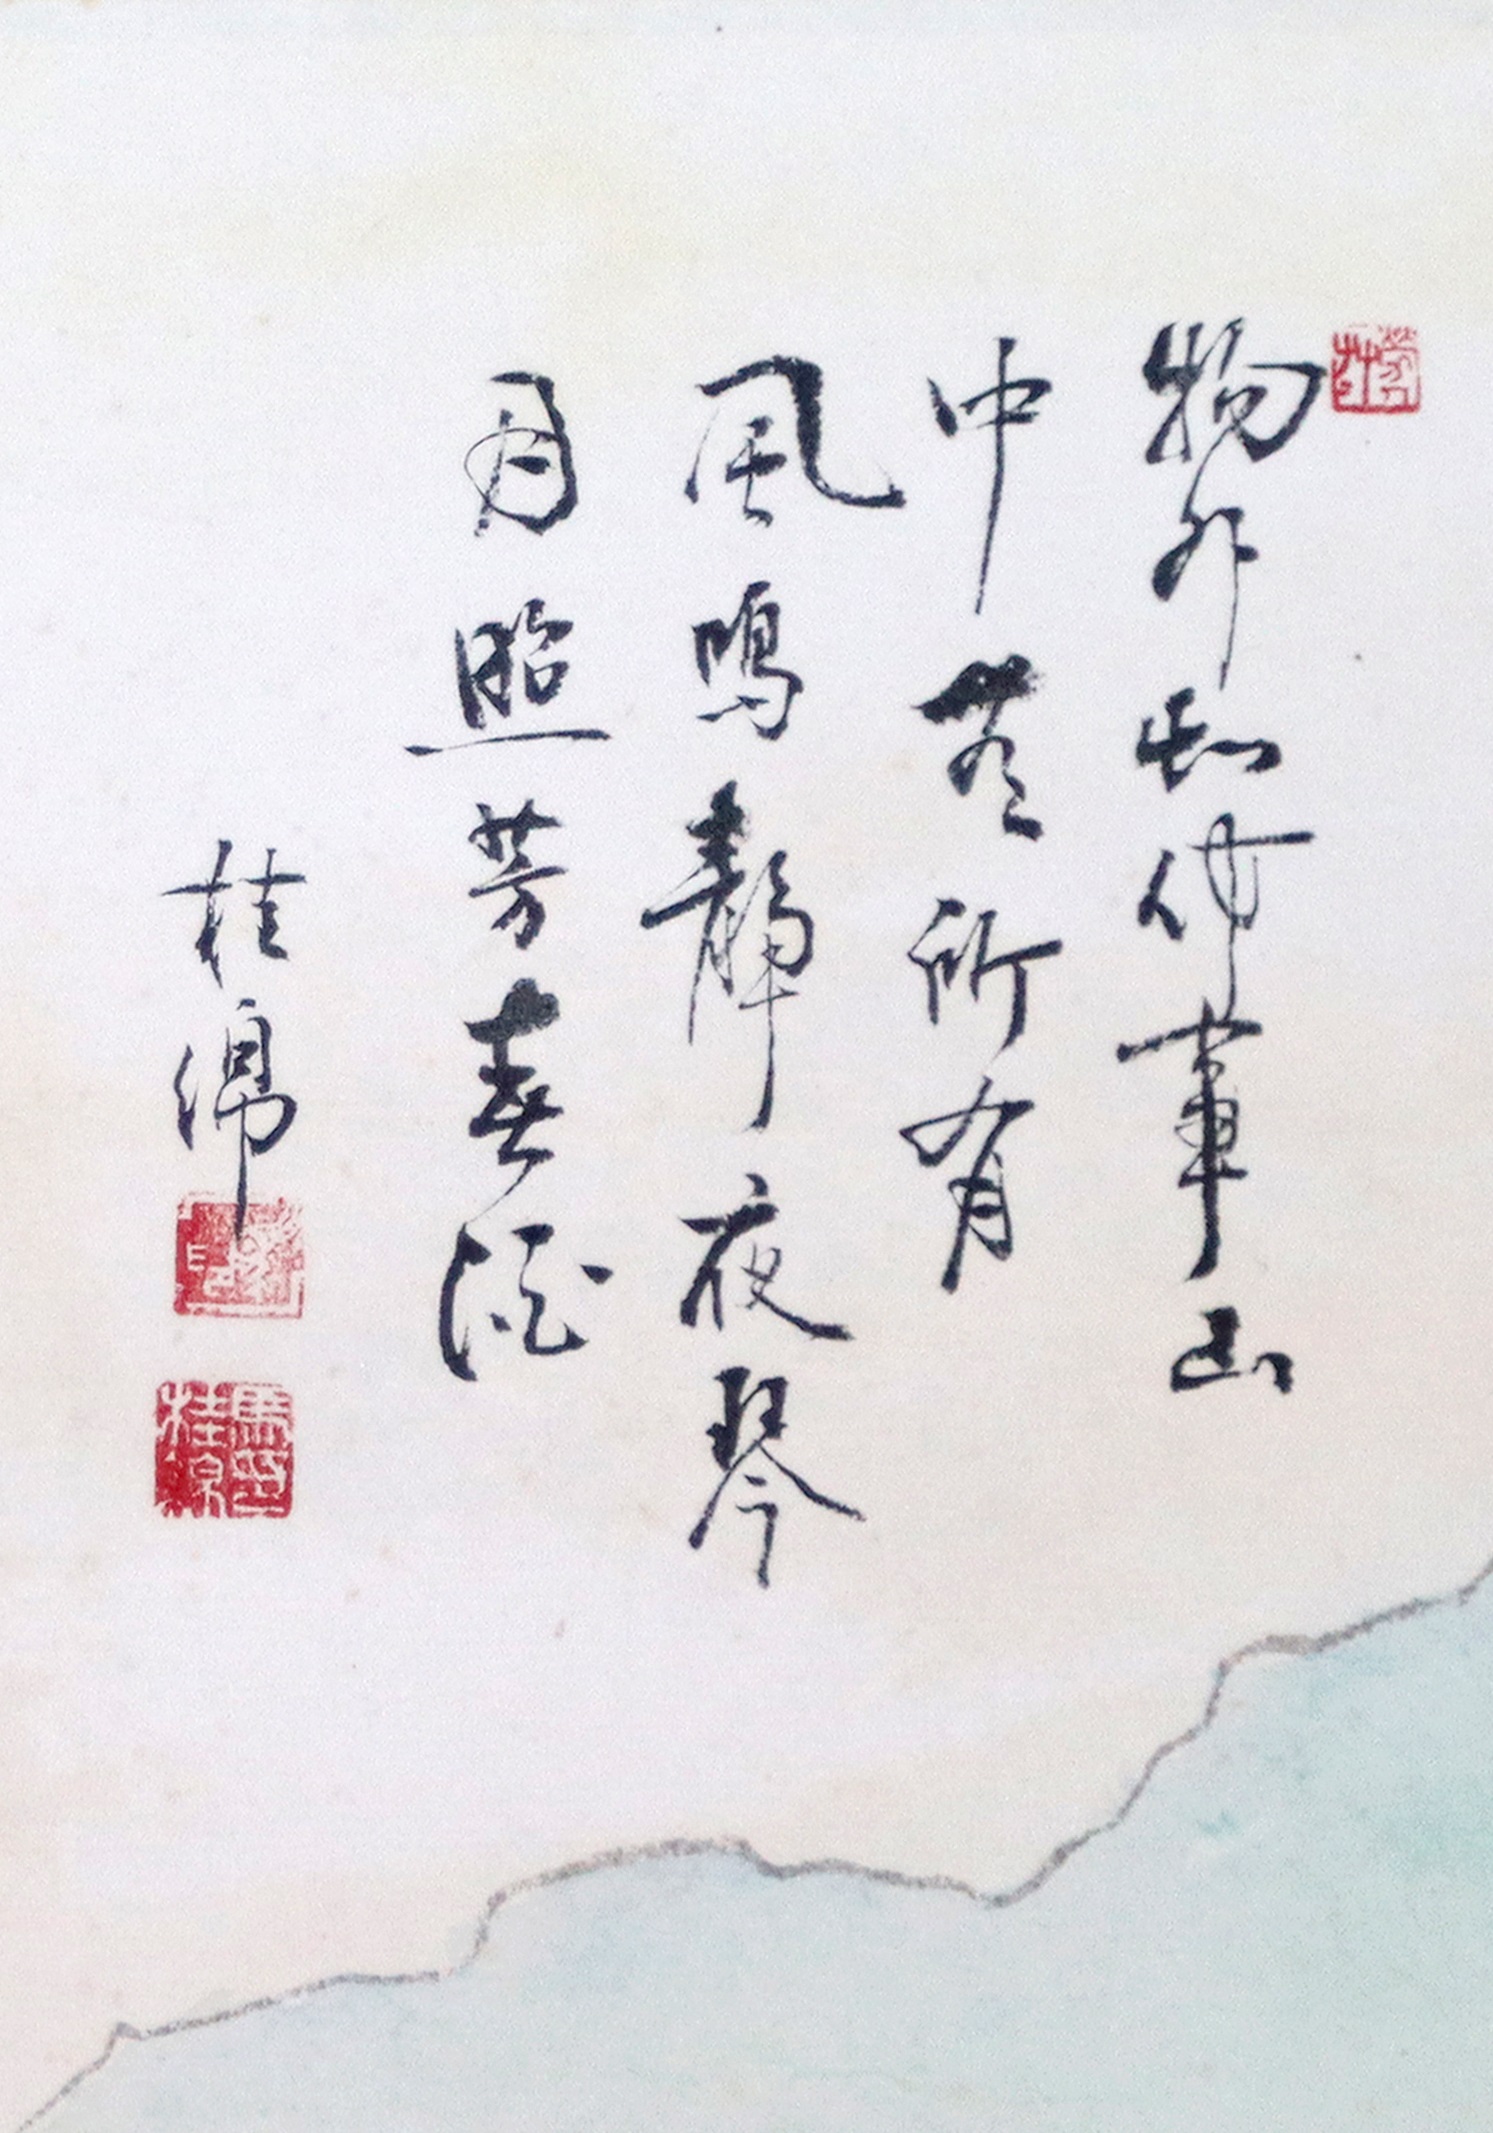 物外知何事山
中無所有
風鳴靜夜琴
月照芳春酒
桂綿
馬桂綿印